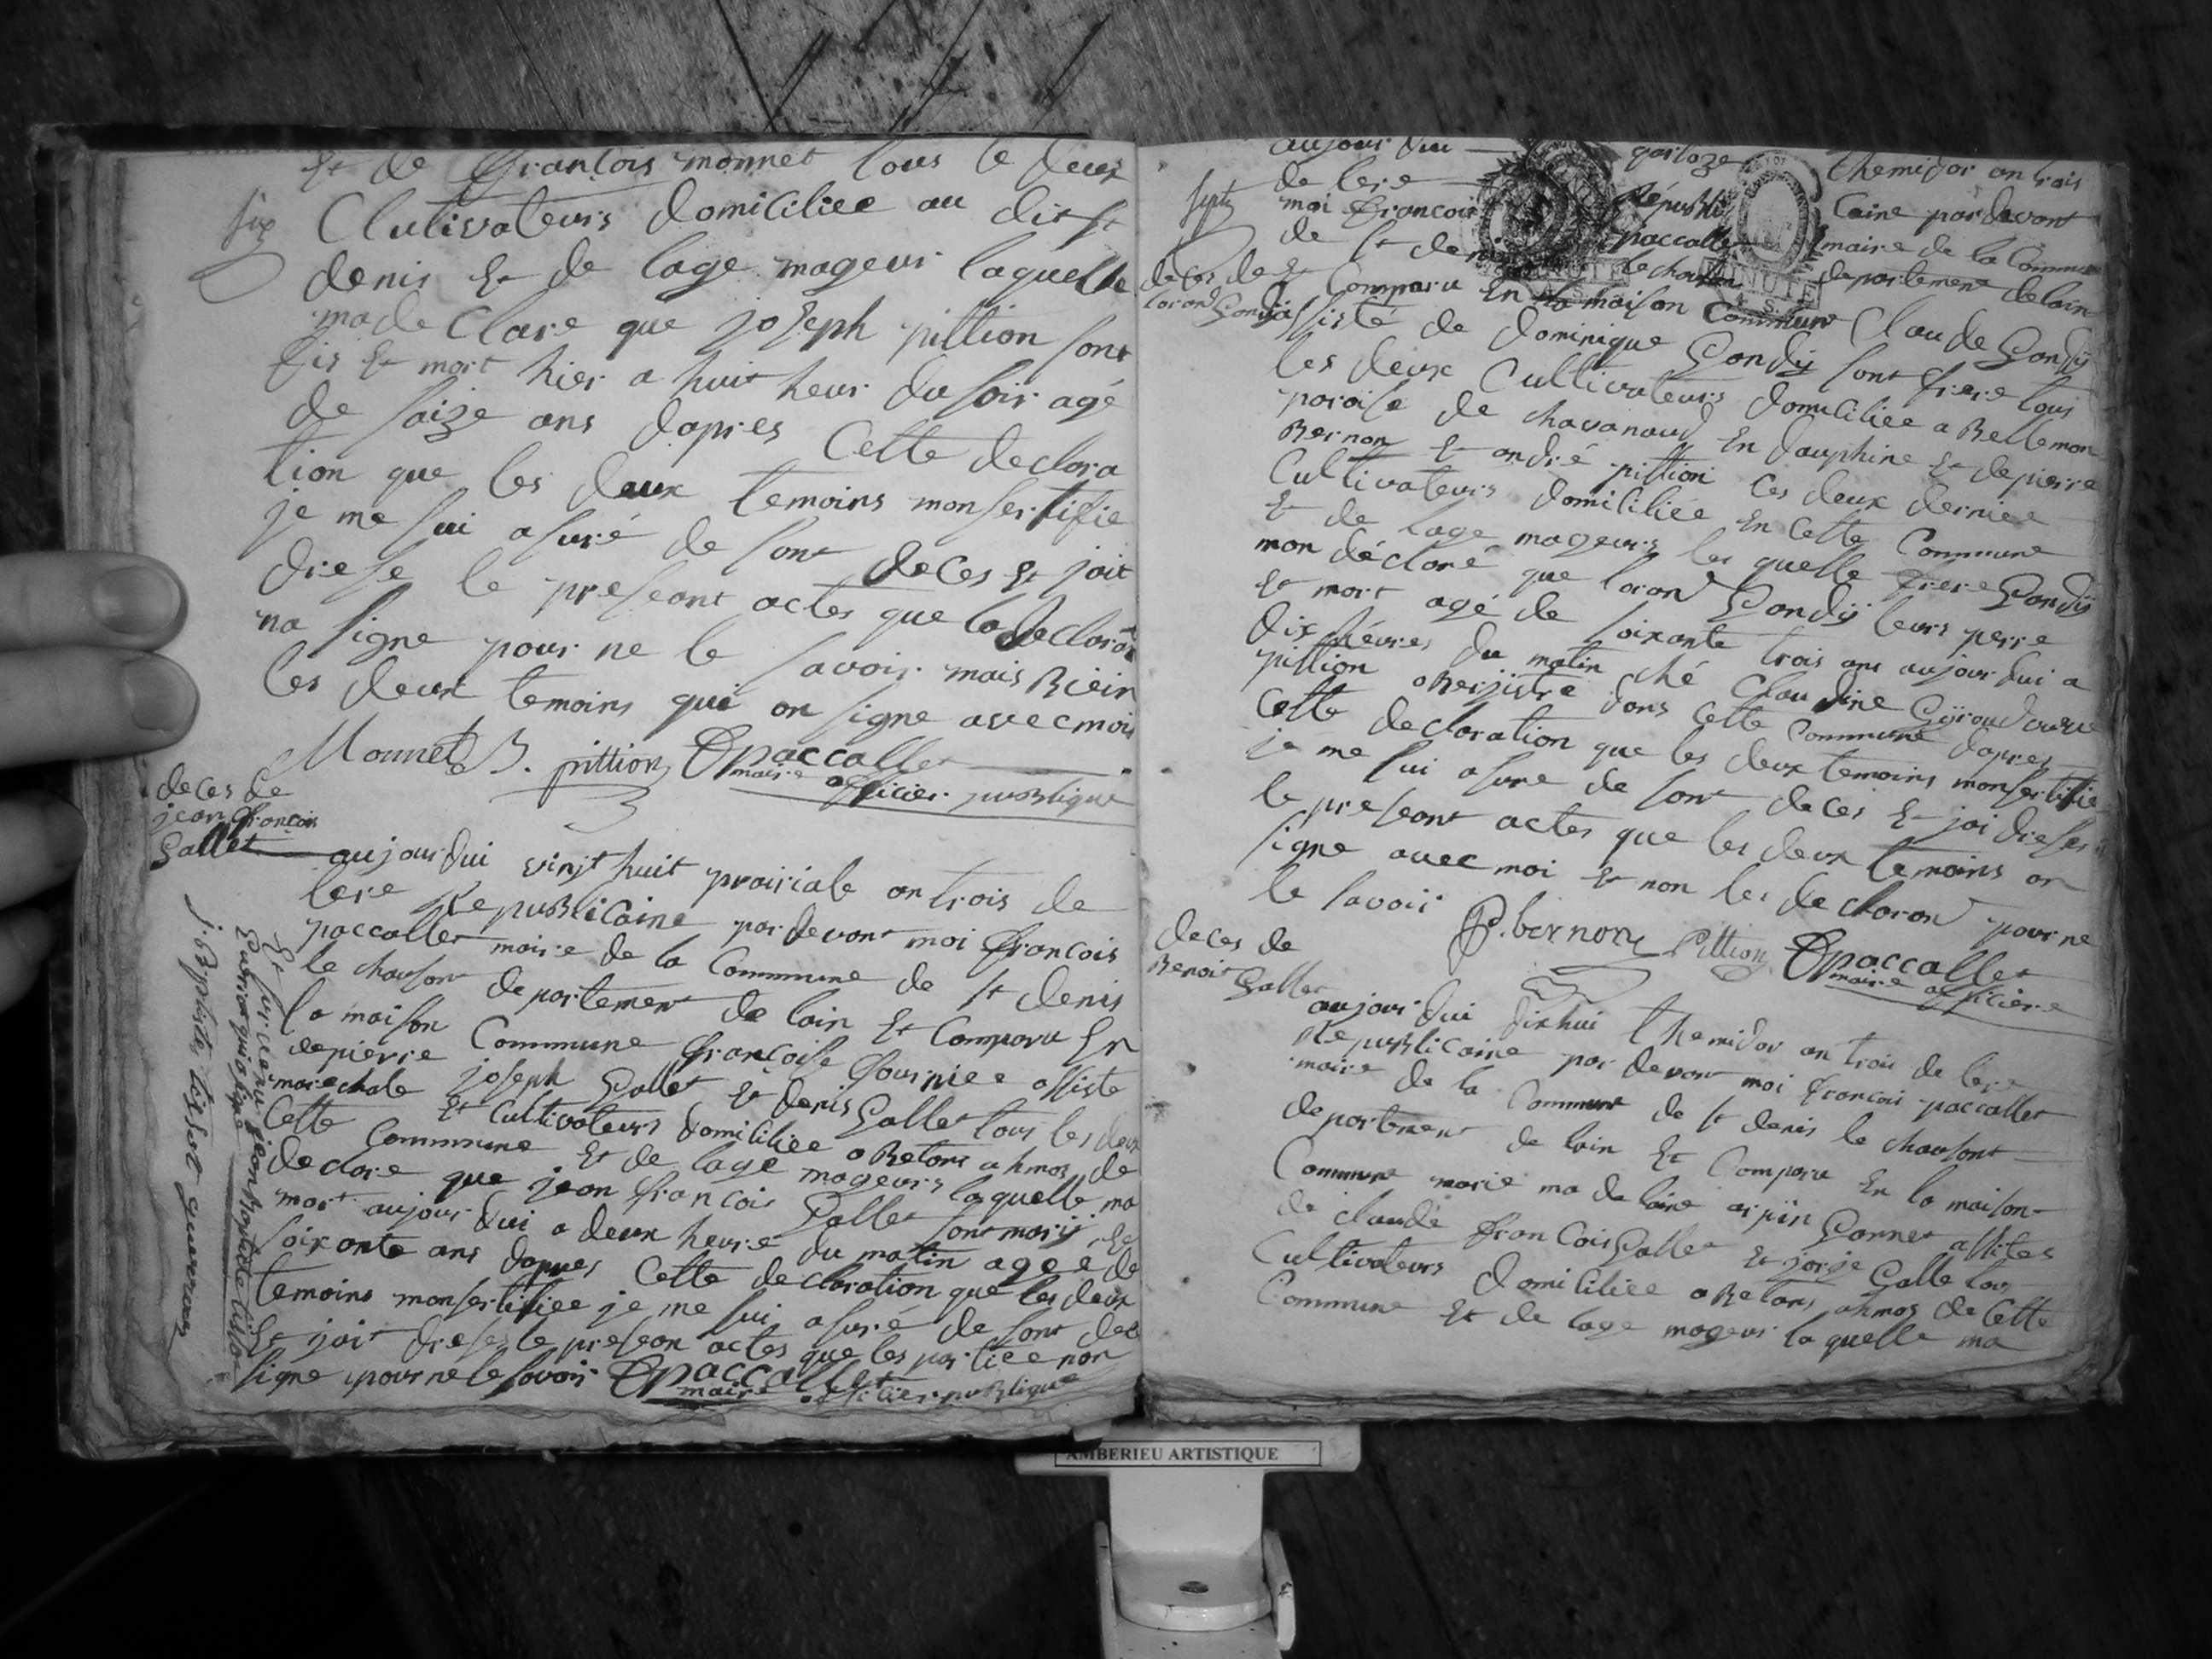 Et de francois monnet tous le deux
six
Clutivateurs domiciliee au dit st
denis Et de lage mageur laquelle
ma de Clare que joseph pittion sont
fis Et mort hier a huit heur du soir agé
de saize ans dapres Cette declara
tion que les deux temoins mon sertifie
je me sui asuré de sont deces Et jait
drese le preseant actes que la declorant
na signe pour ne le savoir mais Biein
les deux temoins qui on signe avec moi
Monnet B. pittion paccallet
maire officier publique
deces de
jean francois
Gallet
aujourdui vingt huit prairiale an trois de
lere Republicaine par devant moi francois
paccallet maire de la Commune de st denis
le chauson departement de lain Et Compara En
la maison Commune francoise fourniee assiste
de pierre joseph Gallet Et denis Gallet tous les deux
marechale Et Cultivateurs domiciliee a Betans ahmos de
Cette Commune Et de lage mageurs laquelle ma
declare que jean francois Gallet sont mary Et
mort aujourdui a deux heure du matin agee de
soixante ans dapres Cette declaration que les deux
temoins mon sertifiee je me sui asuré de sont deces
Et jait dreser le presean actes que les partiee non
signe pour ne le savoir paccallet
maire officier publique
aujourdui gatoze themidor an trois
de lere Républi Caine par devant
sept
moi francois paccallet maire de la Commune
de st denis le chauson departement de lain
deces de
loran Gondy
Et Compara En la maison Commune Claude Gondy
assisté de dominique Gondy sont frere tous
les deux Cultivateurs domiciliee a Bellemon
paroise de chavanaud En dauphine Et de pierre
Bernon Et andré pittion Ces deux derniee
Cultivateurs domiciliée En Cette Commune
Et de lage mageurs les quelle frere Gondy
mon déclaré que loran Gondy leurs perre
Et mort agé de soixante trois ans aujourdui a
dix héures du matin ché Claudine Gyroud veuve
pittion a Berjistre dans Cette Commune dapres
Cette declaration que les deux temoins mon sertifie
je me sui asure de sont deces Et jai dreser
le preseant actes que les deux temoins on
signe avec moi Et non les decloran pour ne
le savoir
P. bernon Pittion paccallet
maire officiere
deces de
Benoit Gallet
aujourdui dixhui themidor an trois de lere
Republicaine par devant moi francois paccallet
maire de la Commune de st denis le chausont
departement de lain Et Compara En la maison
Commune marie madelaine arpin Gannet assites
de claude francois Gallet Et jorje Galle tous
Cultivateurs domiciliee a Betans ahmos de Cette
Commune Et de lage mageur la quelle ma
MINUTE
AMBERIEU ARTISTIQUE